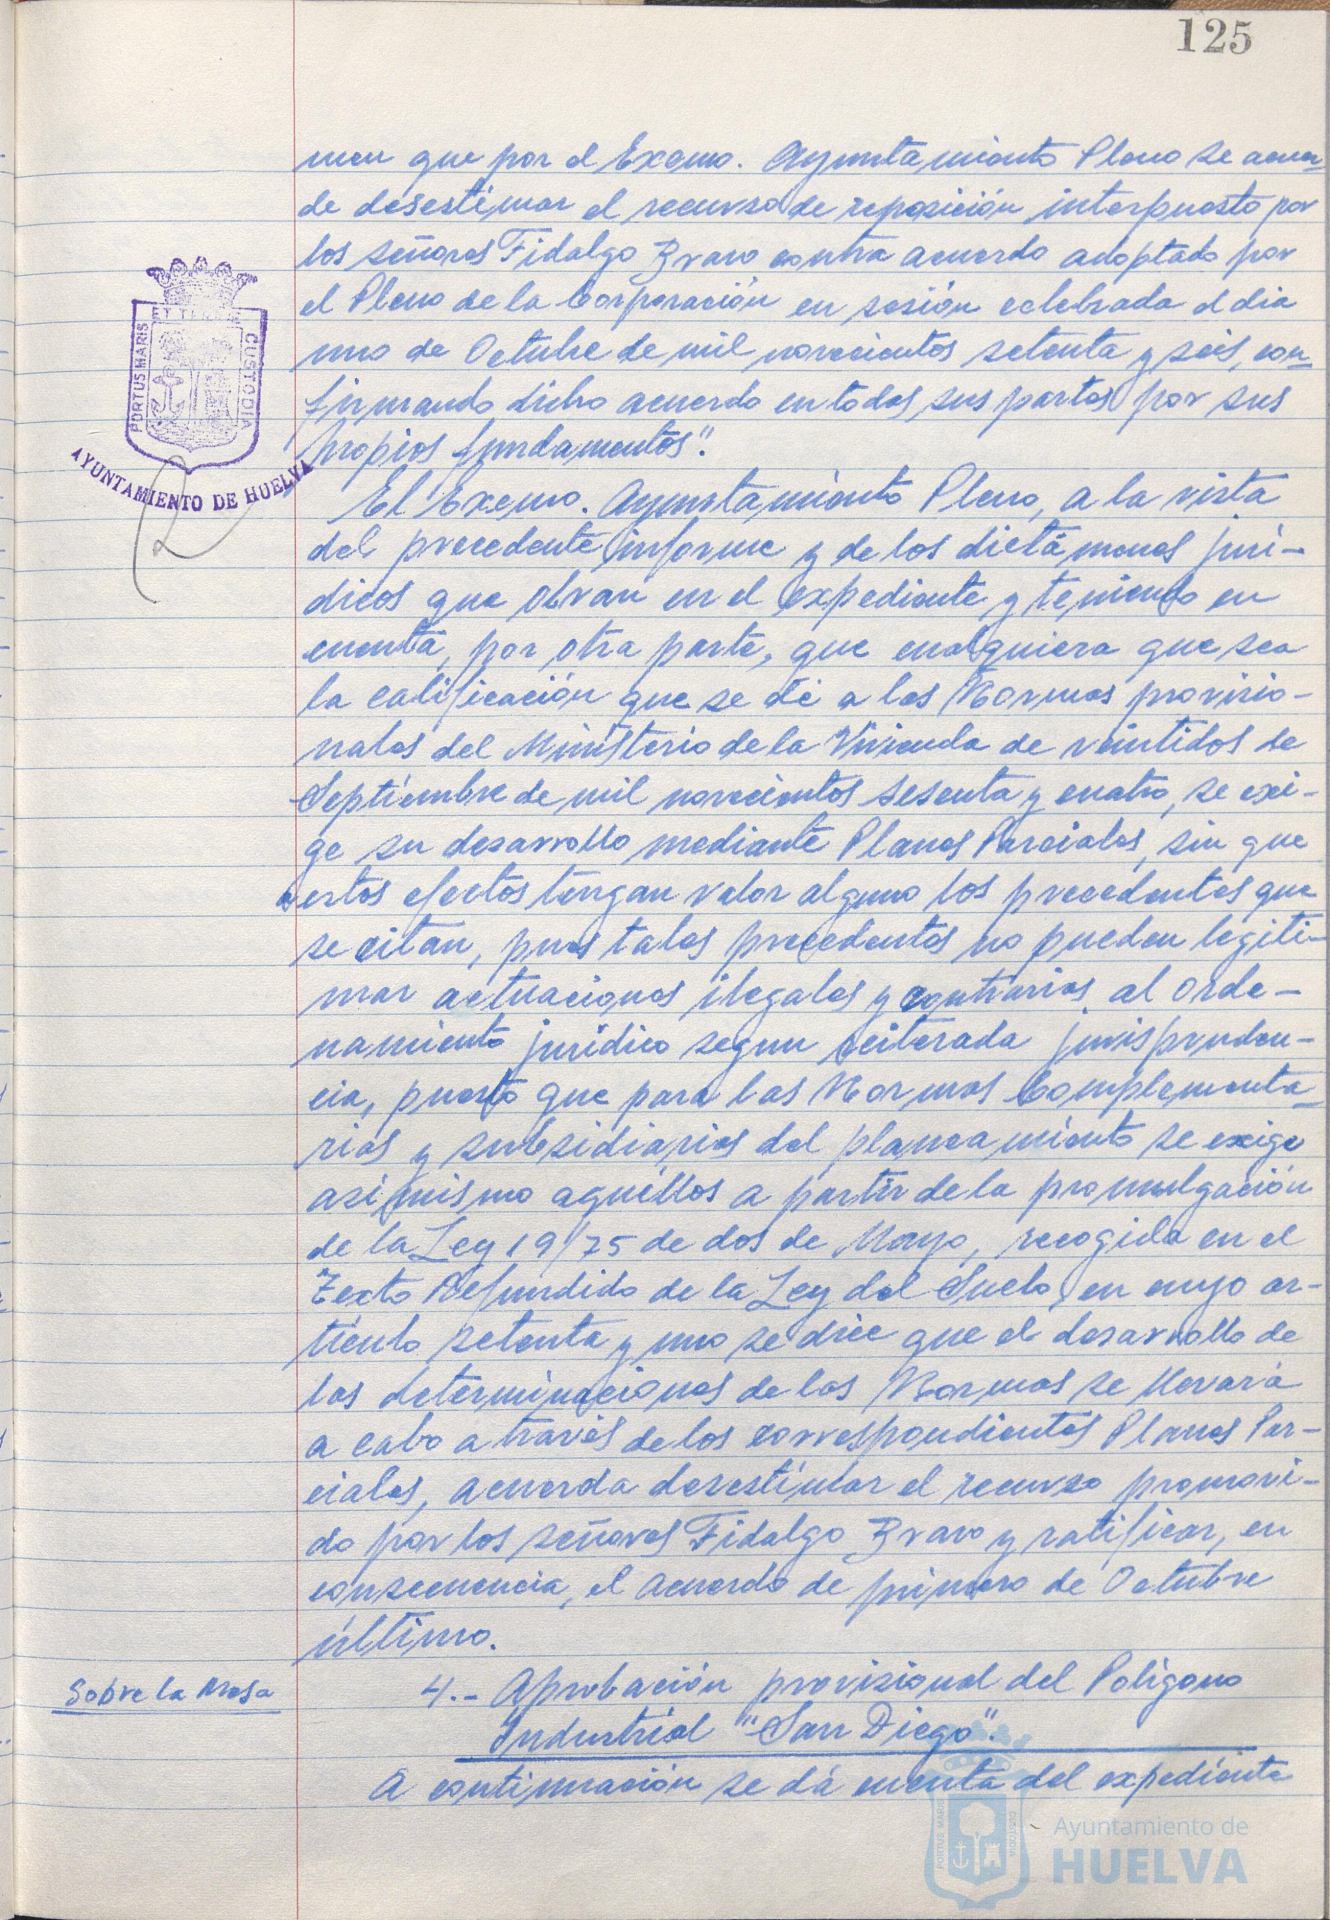 125
men que por el Excmo. Ayuntamiento Pleno se acuer-
de desestimar el recurso de reposición interpuesto por
los señores Fidalgo Bravo contra acuerdo adoptado por
el Pleno de la Corporación en sesión celebrada el dia
uno de Octubre de mil novecientos setenta y seis, con-
firmando dicho acuerdo en todas sus partes por sus
propios fundamentos".
PORTUS MARIS ET TERRAE CUSTODIA
AYUNTAMIENTO DE HUELVA
El Excmo. Ayuntamiento Pleno, a la vista
del precedente informe y de los dictámenes jurí-
dicos que obran en el expediente y teniendo en
cuenta, por otra parte, que cualquiera que sea
la calificación que se dé a las Normas provisio-
nales del Ministerio de la Vivienda de veintidos de
Septiembre de mil novecientos sesenta y cuatro, se exi-
ge su desarrollo mediante Planes Parciales, sin que
a estos efectos tengan valor alguno los precedentes que
se citan, pues tales precedentes no pueden legiti-
mar actuaciones ilegales y contrarias al orde-
namiento jurídico segun reiterada jurispruden-
cia, puesto que para las Normas Complementa-
rias y subsidiarias del planeamiento se exige
asimismo aquéllos a partir de la promulgación
de la Ley 19/75 de dos de Mayo, recogida en el
Texto Refundido de la Ley del Suelo, en cuyo ar-
tículo setenta y uno se dice que el desarrollo de
las determinaciones de las Normas se llevará
a cabo a través de los correspondientes Planes Par-
ciales, acuerda desestimar el recurso promovi-
do por los señores Fidalgo Bravo y ratificar, en
consecuencia, el acuerdo de primero de Octubre
último.
Sobre la Mesa
4.- Aprobación provisional del Polígono
Industrial "San Diego".
A continuación se dá cuenta del expediente
PORTUS MARIS CUSTODIA
Ayuntamiento de
HUELVA